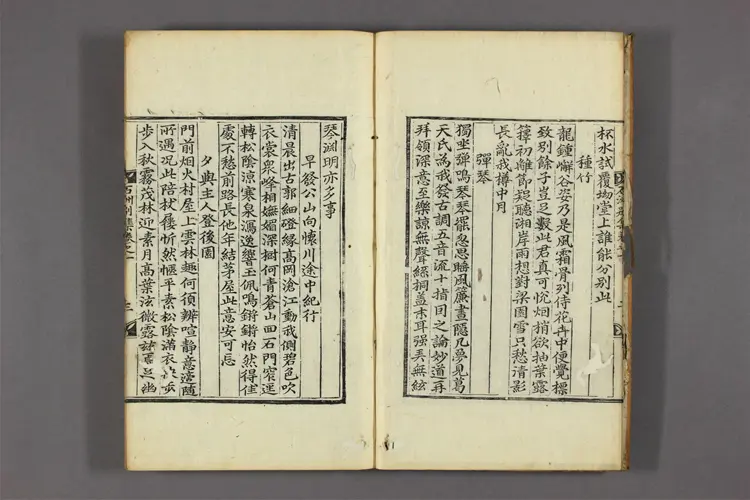 杯水試覆坳堂上誰能分別此
種竹
龍鍾嶰谷姿乃是風霜骨列侍花卉中便覺標
致別餘子豈乏觀此君真可悅烟梢欲抽葉露
籜初離節疑聽湘岸雨想對梁園雪只愁清影
長亂我樽中月
彈琴
獨坐彈鳴琴琴罷忽思睡風簾晝隱几夢見葛
天氏為我發古調五音流十指目之論妙道再
拜領深意至樂諒無聲絲桐盖末耳强弄無絃
琴淵明亦多事
早發公山向懷川途中紀行
清晨出古郭細磴緣高岡滄江動我側碧色吹
衣裳衆峰相嫵媚深樹何青蒼山回石門窄逕
轉松陰凉寒泉瀉逸響玉佩鳴鏘鏘怡然得佳
處不愁前路長他年結茅屋此意安可忘
夕與主人登後園
門前烟火村屋上雲林趣何須辨喧靜意適隨
所遇况此陪杖屨忻然愜平素松陰滿衣
步入秋霧茂林迎素月高葉泫微露 幽
石洲別集卷之一